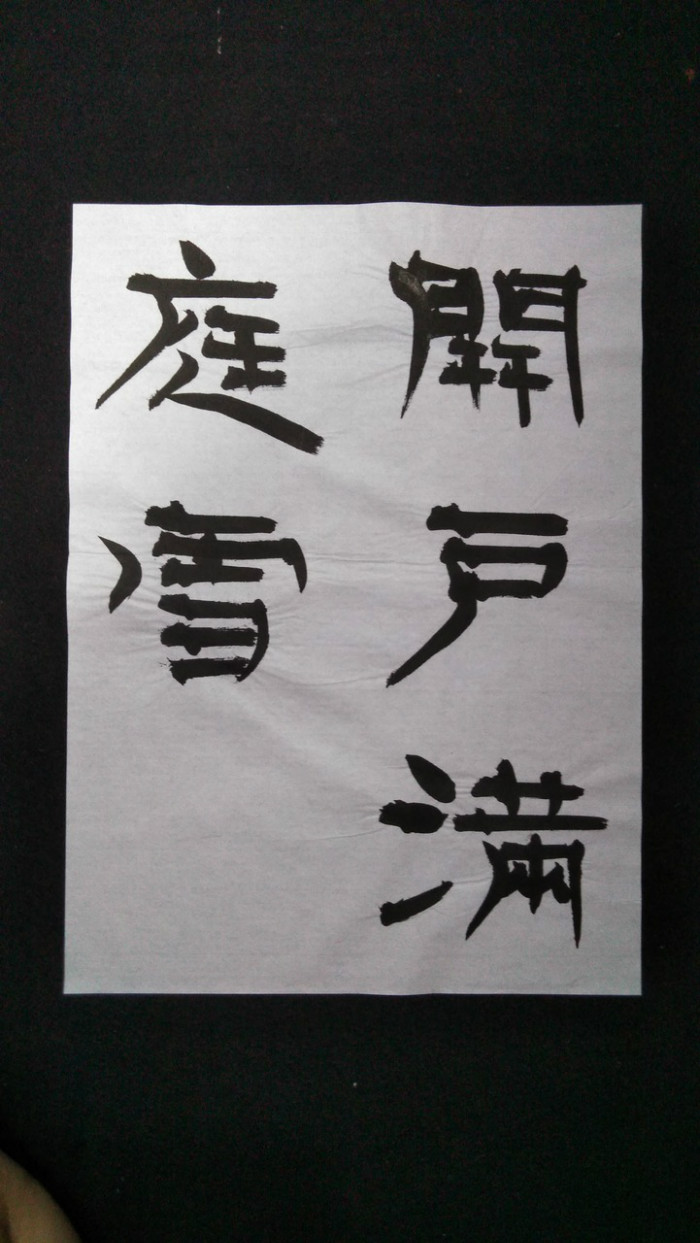 開戶滿
庭雪